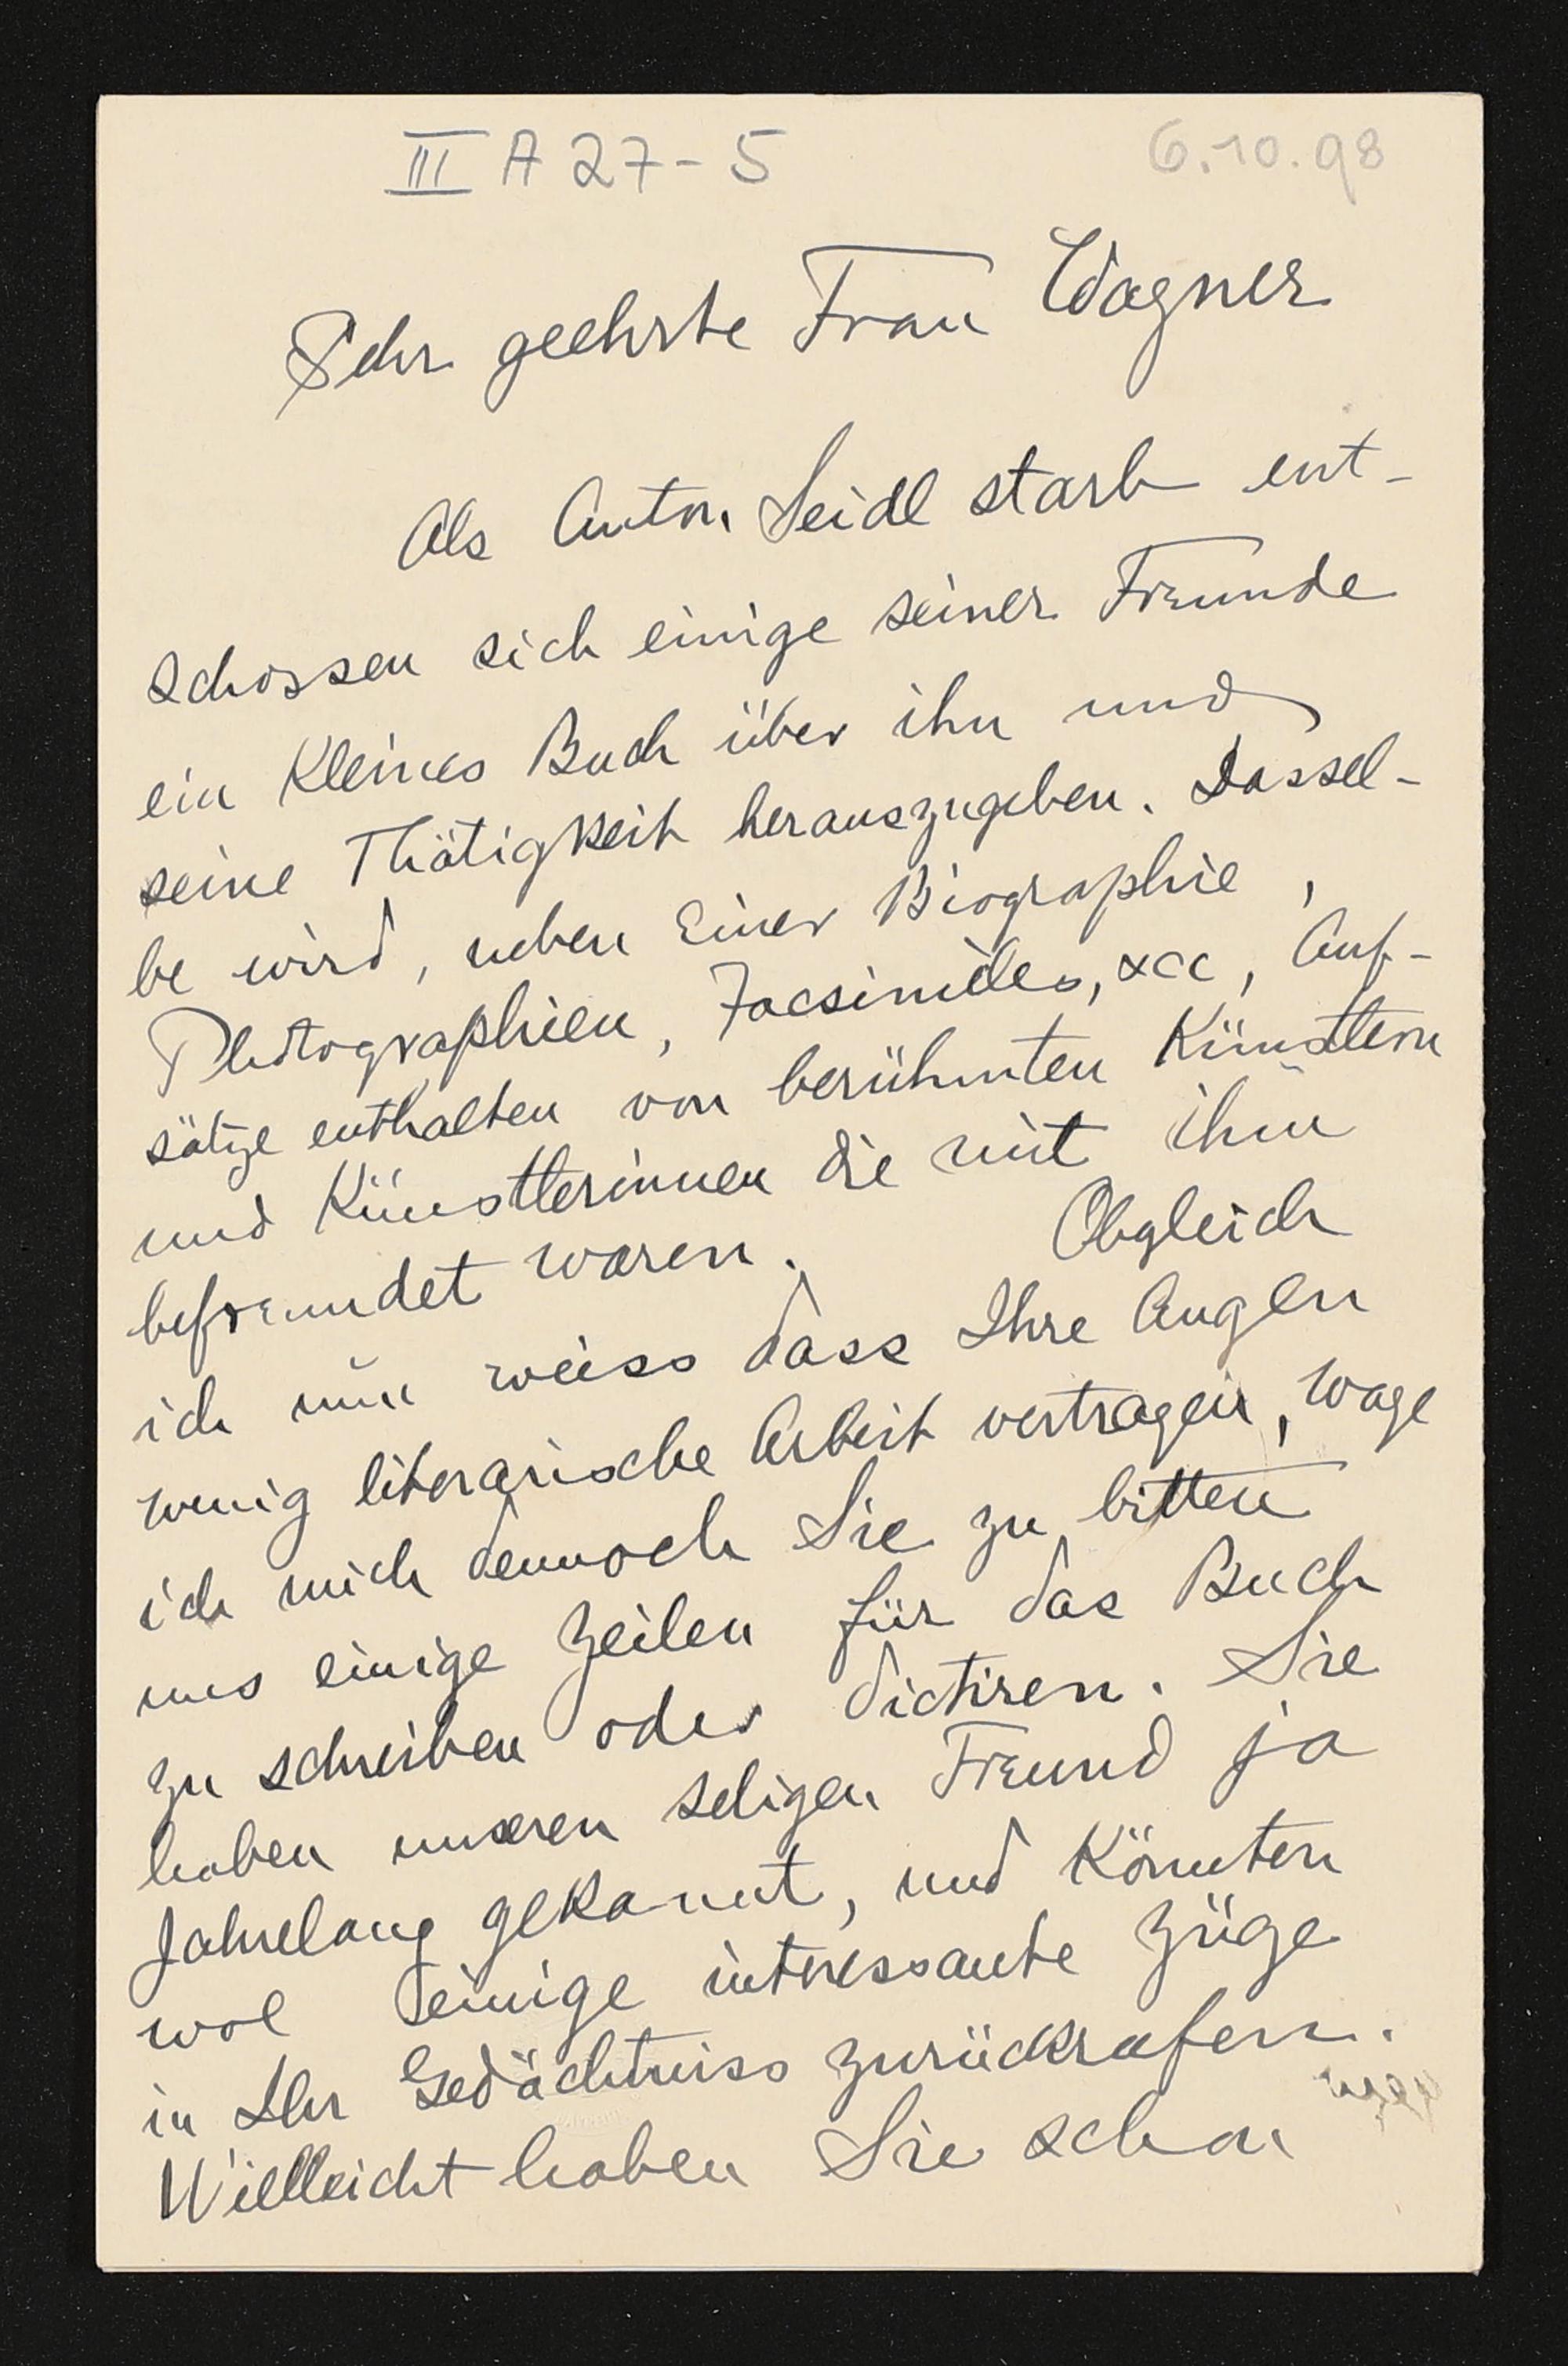 III A 27-5
6.10.98
Sehr geehrte Frau Wagner
Als Anton Seidl starb ent-
schossen sich einige seiner Freunde
ein Kleines Buch über ihn und
seine Thätigkeit herauszugeben. Dassel-
be wird, neben einer Biographie,
Photographien, Facsimiles, &cc, Auf-
sätze enthalten von berühmten Künstlern
und Künstlerinnen die mit ihm
befreundet waren. Obgleich
ich nun weiss dass Ihre Augen
wenig literarische Arbeit vertragen, wage
ich mich dennoch Sie zu bitten
uns einige Zeilen für das Buch
zu schreiben oder dictiren. Sie
haben unseren seligen Freund ja
Jahrelang gekannt, und Könnten
wol einige interessante Züge
in Ihr Gedächtniss zurückrufen.
Vielleicht haben Sie schon